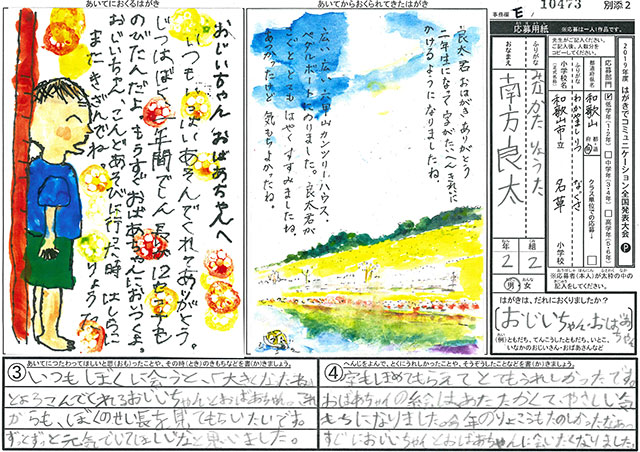 あいてにおくるはがき
おじいちゃん おばあちゃんへ
いつもいっぱいあそんでくれてありがとう。
じつはぼく、一年間でしん長が12センチも
のびたんだよ。もうすぐおばあちゃんにおいつくよ。
おじいちゃん、こんどあそびに行った時、はしらに
またきざんでね。
りょうた
あいてからおくられてきたはがき
良太君 おはがきありがとう
二年生になって字がたいへんきれいに
かけるようになりましたね。
山カンツリーハウス、
ペダルボートにのりました。良太君が
こぐととてもはやくすすみましたね。
あつかったけど気もちよかったね。
事務欄 E 10473
別添2
2019年度 はがきでコミュニケーション全国発表大会 P
応募用紙
※応募は一人1作品です。
先生がご記入ください。
ご記入後、人数分を
コピーしてください。
応募部門
低学年(1・2年)
中学年(3・4年)
高学年(5・6年)
都道府県名
和歌山
都・道
府・県
ふりがな
わかやましりつ なぐさ
小学校名
和歌山市立 名草 小学校
クラス単位での応募
※応募者(本人)が太枠の中の
記入をしてください。
ふりがな
みなかた りょうた
おなまえ
南方良太
2年
2組
男・女
はがきは、だれにおくりましたか?
おじいちゃん・おばあちゃん
(例)ともだち、てんこうしたともだち、いとこ、
いなかのおじいさん・おばあさんなど
③ あいてにつたわってほしいと思(おも)ったことや、その時(とき)のきもちなどを書(か)きましょう。
いつもぼくに会うと、「大きくなったね」
とよろこんでくれるおじいちゃんとおばあちゃん。これ
からも、ぼくのせい長を見てもらいたいです。
ずっとずっと元気でいてほしいなと思いました。
④ へんじをよんで、とくにうれしかったことや、そうぞうしたことなどを書(か)きましょう。
字もほめてもらえてとてもうれしかったです。
おばあちゃんの絵はあたたかくて、やさしい気
もちになりました。今年のりょこうもたのしかったなあ〜
すぐにおじいちゃんとおばあちゃんに会いたくなりました。